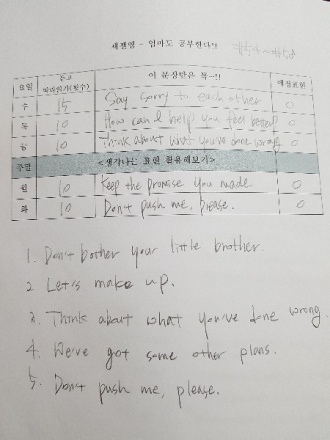 새벽영 - 엄마도 공부한다!!
요일 이 문장만은 꼭~!! 예정표현
수 15 Say sorry to each other 0
목 10 How can I help you feel better 0
금 10 Think about what you've done wrong 0
주말 <생각나는 표현 활용해보기>
월 10 Keep the promise you made 0
화 10 Don't push me, please. 0
1. Don't bother your little brother.
2. Let's make up.
3. Think about what you've done wrong.
4. We've got some other plans.
5. Don't push me, please.